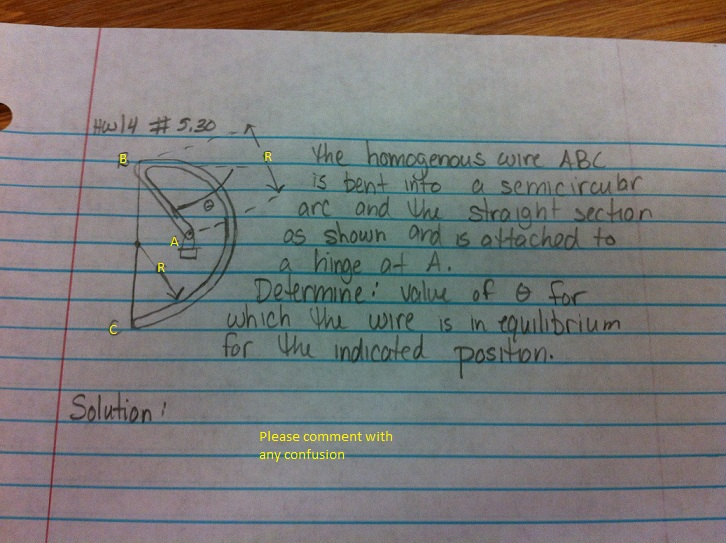 HW14 # 5.30
B
R
θ
A
R
C
The homogenous wire ABC
is bent into a semicircular
arc and the straight section
as shown and is attached to
a hinge at A.
Determine: value of θ for
which the wire is in equilibrium
for the indicated position.
Solution:
Please comment with
any confusion